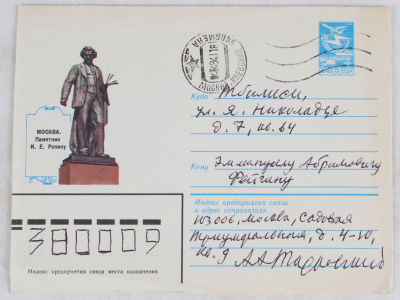 МОСКВА.
Памятник
И. Е. Репину
Куда Тбилиси,
ул. Я. Николадзе
д. 7, кв. 64
Кому Эммануилу Абрамовичу
Фейгину
Индекс предприятия связи
и адрес отправителя
103006, Москва, Садовая
Триумфальная, д. 4-10,
кв. 9
380009
Индекс предприятия связи места назначения
МОСКВА